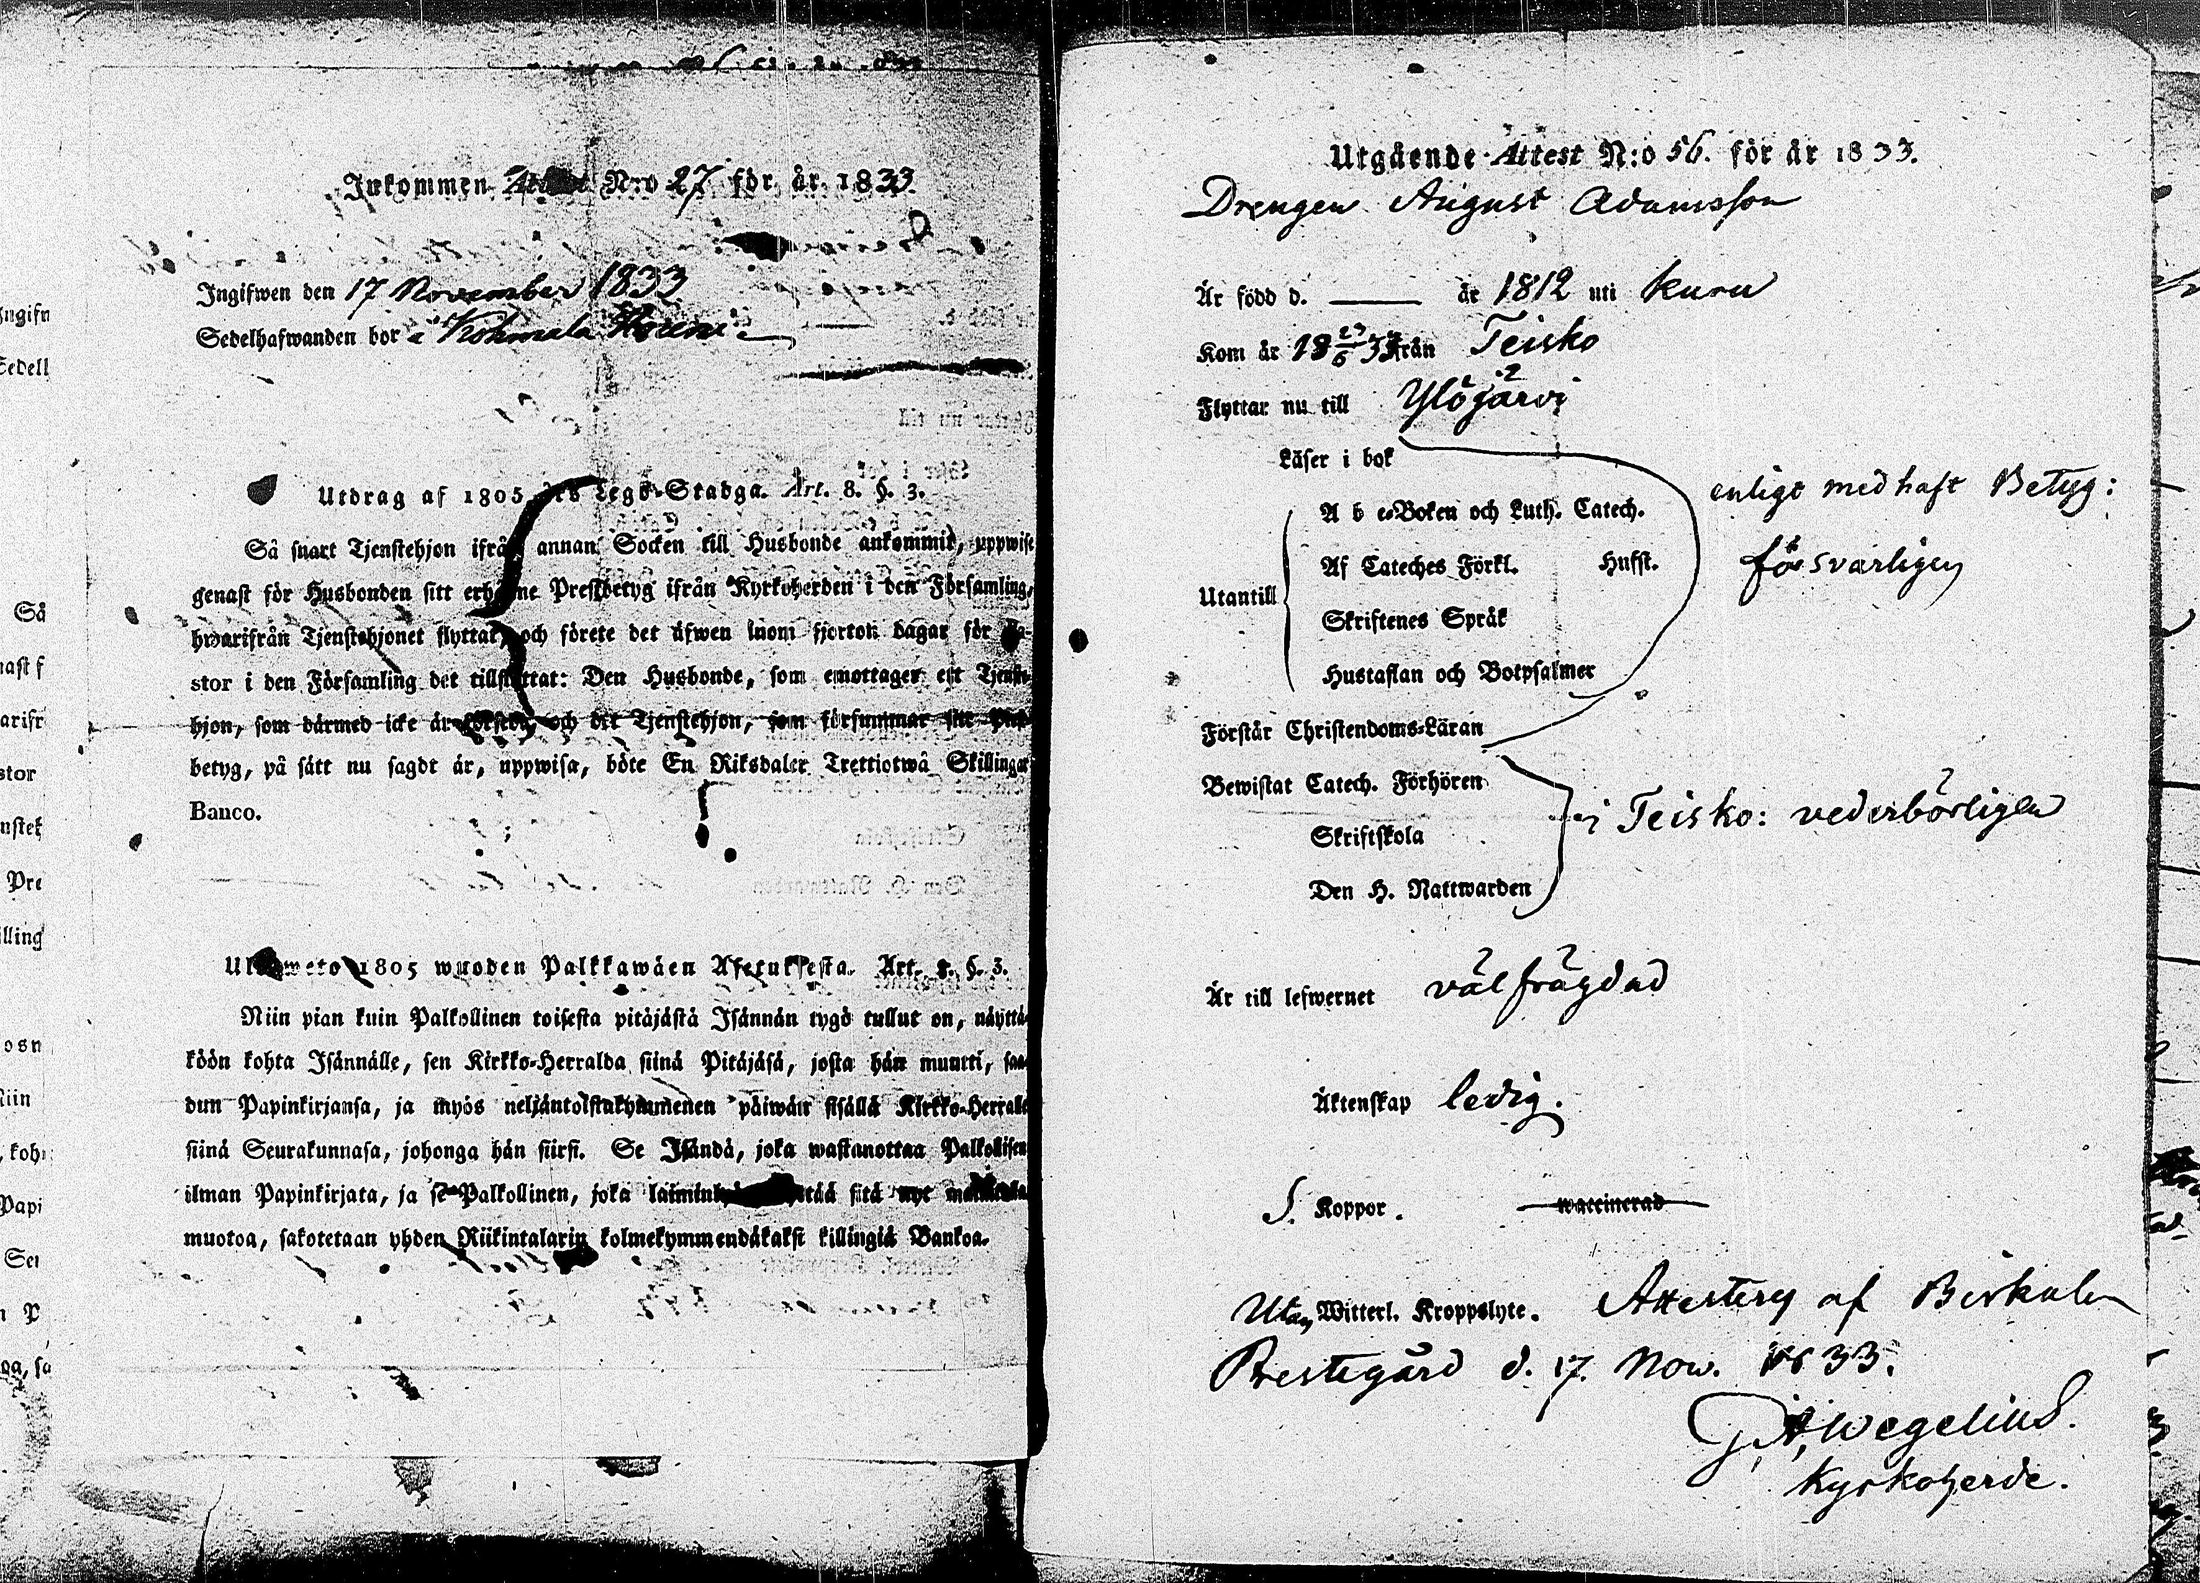 Inkommen N:o 27 för år 1833.
Ingifwen den 17 November 1833
Sedelhafwanden bor i Kohmala
Utdrag af 1805 Lego-Stadga. Art. 8. §. 3.
Så snart Tjenstehjon ifrån annan Socken till Husbonde ankommit, uppwise
genast för Husbonden sitt erhållne Prestbetyg ifrån Kyrkoherden i den Församling,
hwarifrån Tjenstehjonet flyttat, och förete det äfwen inom fjorton dagar för Pa-
stor i den Församling det tillflyttat: Den Husbonde, som emottager ett Tjenste-
hjon, som därmed icke är försedt, och det Tjenstehjon, som försummar sitt Prest-
betyg, på sätt nu sagdt är, uppwisa, böte En Riksdaler Trettiotwå Skillingar
Banco.
Ulosweto 1805 wuoden Palkkawäen Asetuksesta. Art. 8. §. 3.
Niin pian kuin Palkollinen toisesta pitäjästä Isännän tygö tullut on, näyttä-
köön kohta Isännälle, sen Kirkko-Herralda siinä Pitäjäsä, josta hän muutti, saa-
dun Papinkirjansa, ja myös neljäntoistakymmenen päiwän sisällä Kirkko-Herralle
siinä Seurakunnasa, johonga hän siirsi. Se Isändä, joka wastanottaa Palkollisen
ilman Papinkirjata, ja se Palkollinen, joka sitä nyt
muotoa, sakotetaan yhden Riikintalarin kolmekymmendäkaksi killingiä Bankoa.
Utgående Attest N:o 56. för år 1833.
Drengen August Adamsson
Är född d. —— år 1812 uti Kuru
Kom år 18 23/6 33 från Teisko
Flyttar nu till Ylöjärvi
Läser i bok
enligt medhaft Betyg:
A b c-Boken och Luth. Catech.
Af Cateches Förkl. Husst.
försvarligen
Utantill
Skriftenes Språk
Hustaflan och Botpsalmer
Förstår Christendoms-Läran
Bewistat Catech. Förhören
i Teisko: vederbörligen
Skriftskola
Den H. Nattwarden
Är till lefwernet välfrägdad
Äktenskap ledig.
Koppor. waccinerad
Utan Witterl. Kroppslyte. Attesteras af Birkala
Prestegård d. 17. Nov. 1833.
Wegelius.
Kyrkoherde.